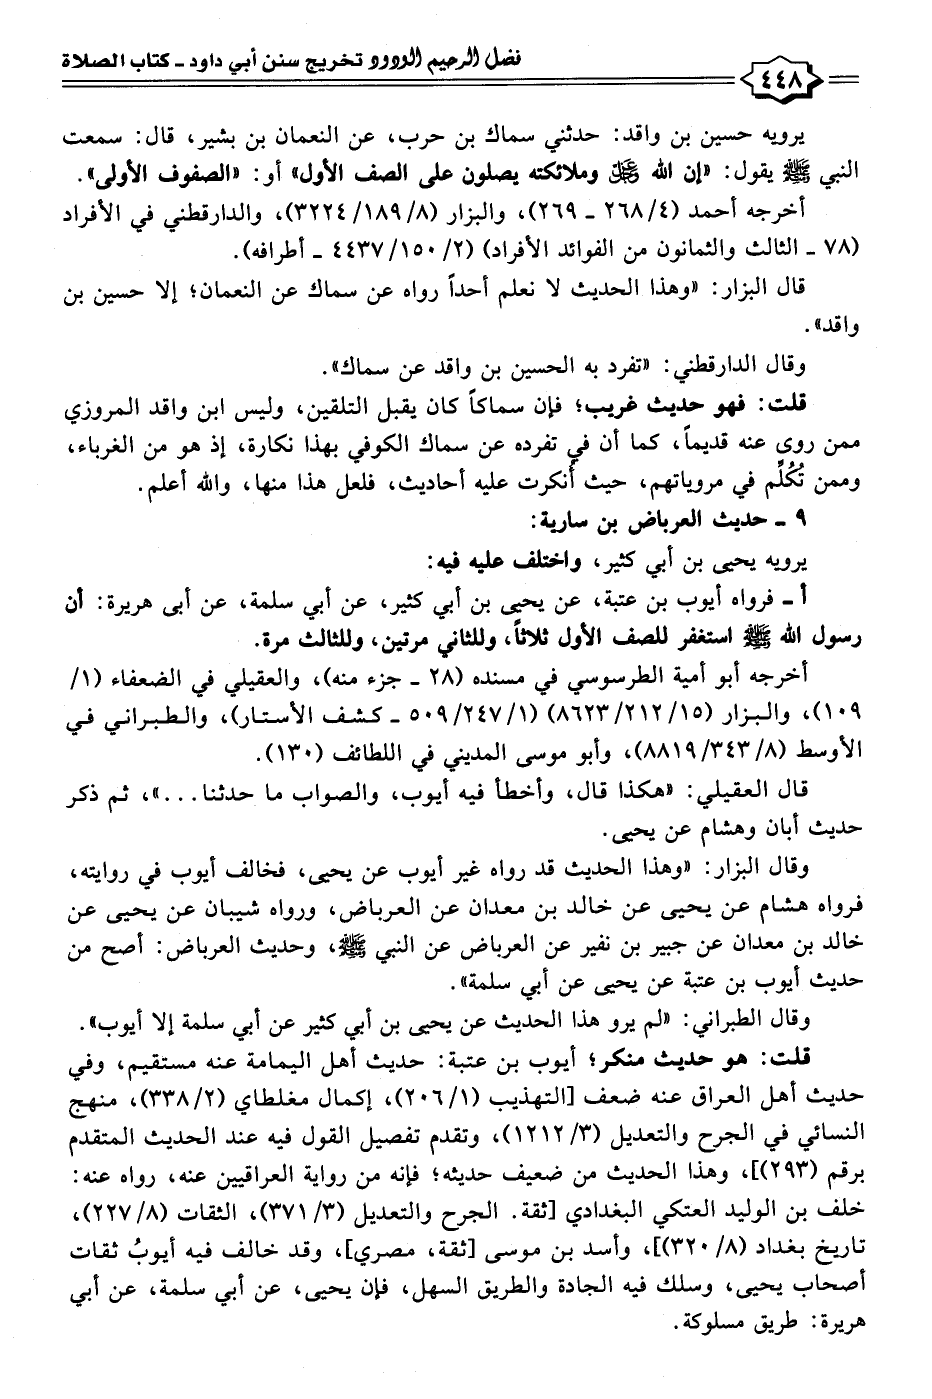 فضل الرحيم الودود تخريج سنن أبي داود - كتاب الصلاة
٤٤٨
يرويه حسين بن واقد: حدثني سماك بن حرب، عن النعمان بن بشير، قال: سمعت
النبي ﷺ يقول: «إن الله ﷿ وملائكته يصلون على الصف الأول» أو: «الصفوف الأولى».
أخرجه أحمد (٤/ ٢٦٨ - ٢٦٩)، والبزار (٨/ ١٨٩/ ٣٢٢٤)، والدارقطني في الأفراد
(٧٨ - الثالث والثمانون من الفوائد الأفراد) (٢/ ١٥٠/ ٤٤٣٧ - أطرافه).
قال البزار: «وهذا الحديث لا نعلم أحداً رواه عن سماك عن النعمان؛ إلا حسين بن
واقد».
وقال الدارقطني: «تفرد به الحسين بن واقد عن سماك».
قلت: فهو حديث غريب؛ فإن سماكاً كان يقبل التلقين، وليس ابن واقد المروزي
ممن روى عنه قديماً، كما أن في تفرده عن سماك الكوفي بهذا نكارة، إذ هو من الغرباء،
وممن تُكُلِّم في مروياتهم، حيث أنكرت عليه أحاديث، فلعل هذا منها، والله أعلم.
٩ - حديث العرباض بن سارية:
يرويه يحيى بن أبي كثير، واختلف عليه فيه:
أ - فرواه أيوب بن عتبة، عن يحيى بن أبي كثير، عن أبي سلمة، عن أبي هريرة: أن
رسول الله ﷺ استغفر للصف الأول ثلاثاً، وللثاني مرتين، وللثالث مرة.
أخرجه أبو أمية الطرسوسي في مسنده (٢٨ - جزء منه)، والعقيلي في الضعفاء (١/
١٠٩)، والبزار (١٥/ ٢١٢/ ٨٦٢٣) (١/ ٢٤٧/ ٥٠٩ - كشف الأستار)، والطبراني في
الأوسط (٨/ ٣٤٣/ ٨٨١٩)، وأبو موسى المديني في اللطائف (١٣٠).
قال العقيلي: «هكذا قال، وأخطأ فيه أيوب، والصواب ما حدثنا...»، ثم ذكر
حديث أبان وهشام عن يحيى.
وقال البزار: «وهذا الحديث قد رواه غير أيوب عن يحيى، فخالف أيوب في روايته،
فرواه هشام عن يحيى عن خالد بن معدان عن العرباض، ورواه شيبان عن يحيى عن
خالد بن معدان عن جبير بن نفير عن العرباض عن النبي ﷺ، وحديث العرباض: أصح من
حديث أيوب بن عتبة عن يحيى عن أبي سلمة».
وقال الطبراني: «لم يرو هذا الحديث عن يحيى بن أبي كثير عن أبي سلمة إلا أيوب».
قلت: هو حديث منكر؛ أيوب بن عتبة: حديث أهل اليمامة عنه مستقيم، وفي
حديث أهل العراق عنه ضعف [التهذيب (١/ ٢٠٦)، إكمال مغلطاي (٢/ ٣٣٨)، منهج
النسائي في الجرح والتعديل (٣/ ١٢١٢)، وتقدم تفصيل القول فيه عند الحديث المتقدم
برقم (٢٩٣)]، وهذا الحديث من ضعيف حديثه؛ فإنه من رواية العراقيين عنه، رواه عنه:
خلف بن الوليد العتكي البغدادي [ثقة. الجرح والتعديل (٣/ ٣٧١)، الثقات (٨/ ٢٢٧)،
تاريخ بغداد (٨/ ٣٢٠)]، وأسد بن موسى [ثقة، مصري]، وقد خالف فيه أيوبُ ثقات
أصحاب يحيى، وسلك فيه الجادة والطريق السهل، فإن يحيى، عن أبي سلمة، عن أبي
هريرة: طريق مسلوكة.